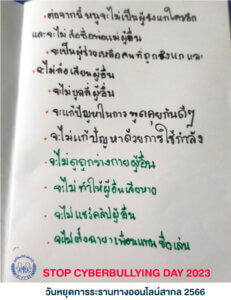 · ต่อจากนี้ หนูจะไม่เป็นผู้รังแกใครอีก
และจะไม่ล้อชื่อพ่อแม่ผู้อื่น
· จะเป็นผู้ช่วยเหลือคนที่ถูกรังแก และ
จะไม่ล้อเลียนผู้อื่น
· จะไม่บูลลี่ผู้อื่น
· จะแก้ปัญหาในการพูดคุยกันดีๆ
· จะไม่แก้ปัญหาด้วยการใช้กำลัง
· จะไม่ดูถูกร่างกายผู้อื่น
· จะไม่ทำให้ผู้อื่นเสียหาย
· จะไม่แชร์คลิปผู้อื่น
· จะไม่ตั้งฉายาเพื่อนแทนชื่อเล่น
STOP CYBERBULLYING DAY 2023
วันหยุดการระรานทางออนไลน์สากล 2566